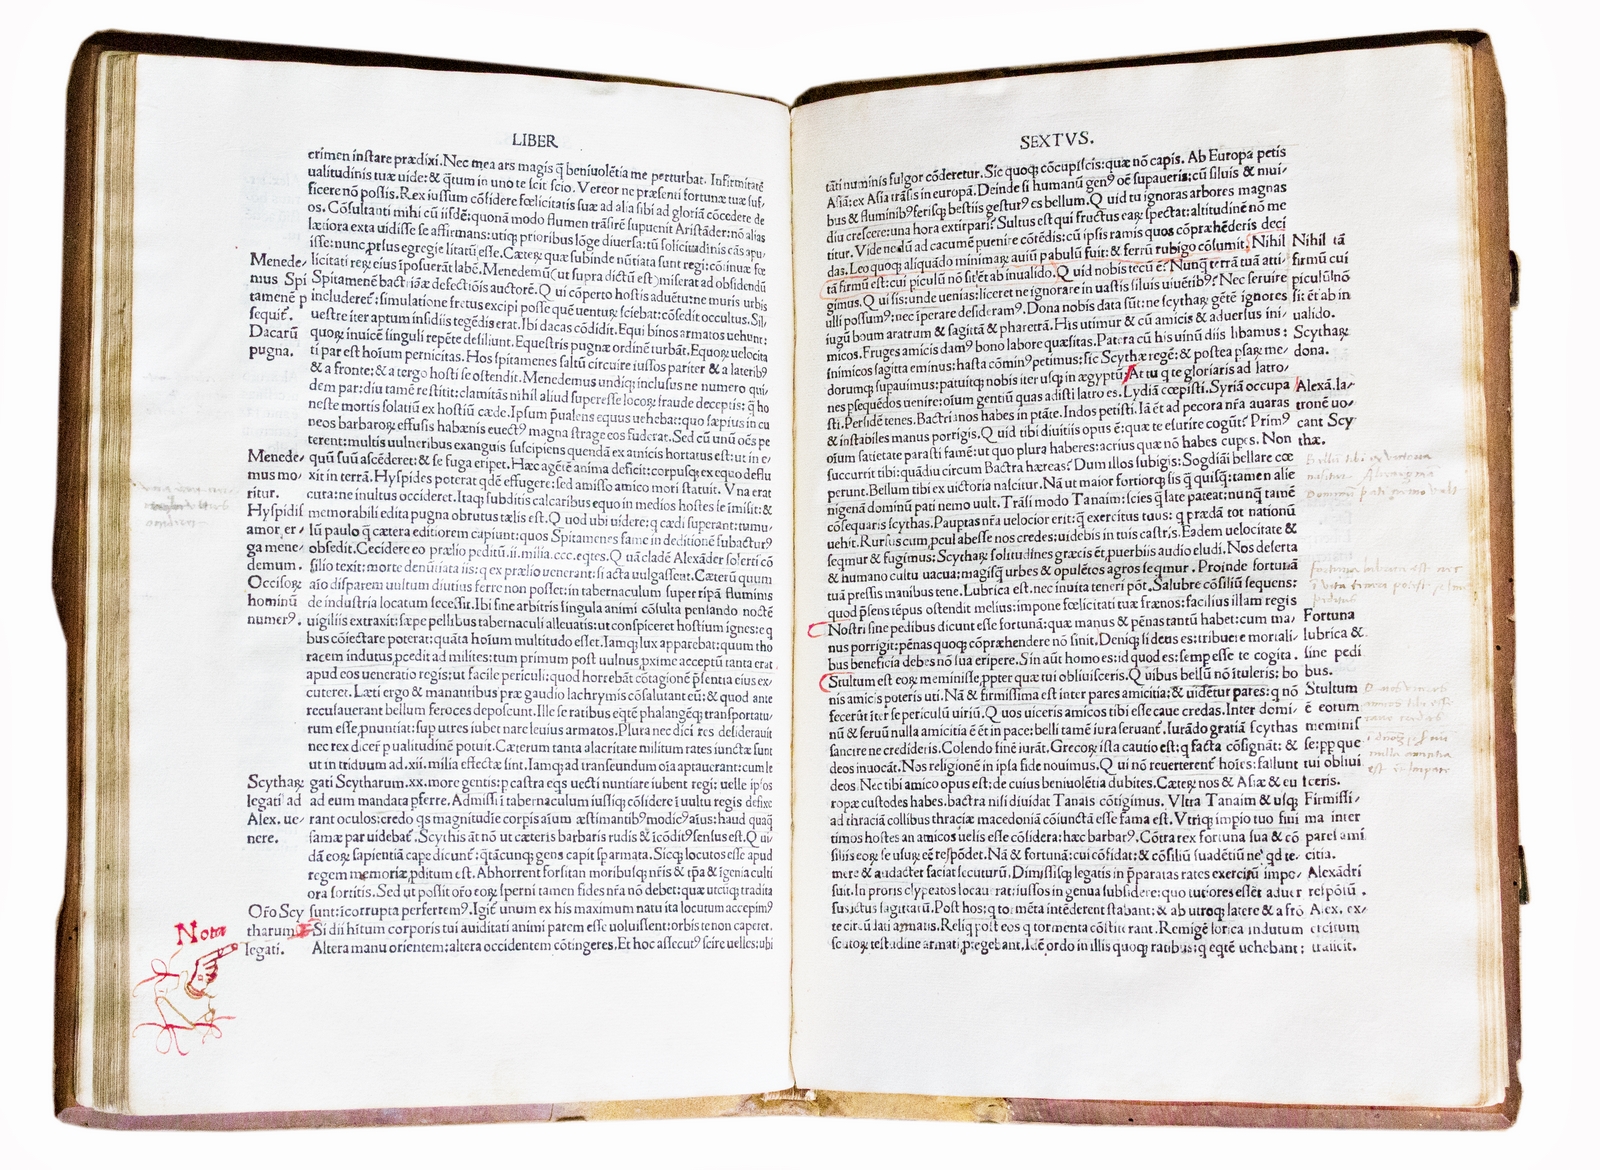 LIBER
crimen instare prædixi. Nec mea ars magis q̃ beniuolẽtia me perturbat. Infirmitatẽ
ualitudinis tuæ uide: & q̃tum in uno te
ficere nõ possis. Rex iussum cõsidere fœlicitatis suæ ad alia sibi ad gloriã cõcedere de
os. Cõsultanti mihi cũ iisdẽ: quonã modo flumen trãsirẽ superuenit Aristãder: nõ alias
lætiora exta uidisse se affirmans: utiq; prioribus lõge diuersa: tũ solicitudinis cãs apu/
isse: nunc prsus egregie litatũ esse. Cæterꝝ quæ subinde nũtiata sunt regi: cõtinuæ fœ
licitati reꝝ eius ĩposuerãt labẽ. Menedemũ (ut supra dictũ est) miserat ad obsidendũ
Spitamenẽ bactriãæ defectiõis auctorẽ. Qui cõperto hostis aduẽtu: ne muris urbis
includeret̃: simulatione fretus excipi posse quẽ uenturũ sciebat: cõsedit occultus. Sil/
uestre iter aptum insidiis tegẽdis erat. Ibi dacas cõdidit. Equi binos armatos uehunt:
quoꝝ inuicẽ singuli repẽte desiliunt. Equestris pugnæ ordinẽ turbãt. Equoꝝ uelocita
ti par est hoĩum pernicitas. Hos spitamenes saltũ circuire iussos pariter & a lateribꝰ
& a fronte: & a tergo hosti se ostendit. Menedemus undiq; inclusus ne numero qui/
dem par: diu tamẽ restitit: clamitãs nihil aliud superesse locoꝝ fraude deceptis: q̃ ho
neste mortis solatiũ ex hostiũ cæde. Ipsum p̃ualens equus uehebat: quo sæpius in cu
neos barbaroꝝ effusis habænis euectꝰ magna strage eos fuderat. Sed cũ unũ oẽs pe
terent: multis uulneribus exanguis suscipiens quendã ex amicis hortatus est: ut in e/
quũ suũ ascẽderet: & se fuga eripet. Hæc agẽtẽ anima deficit: corpusq; ex equo deflu
xit in terrã. Hyspides poterat qdẽ effugere: sed amisso amico mori statuit. Vna erat
cura: ne inultus occideret. Itaq; subditis calcaribus equo in medios hostes se imisit: &
memorabili edita pugna obrutus tælis est. Quod ubi uidere: q cædi superant: tumu/
lũ paulo q̃ cætera editiorem capiunt: quos Spitamenes fame in deditionẽ subacturꝰ
obsedit. Cecidere eo prælio peditũ .ii. milia .ccc. eqtes. Quã cladẽ Alexãder solerti cõ
silio texit: morte denũtiata iis: q ex prælio uenerant: si acta uulgassent. Cæterũ quum
aĩo disparem uultum diutius ferre non posset: in tabernaculum super ripã fluminis
de industria locatum secessit. Ibi sine arbitris singula animi cõsulta pensando noctẽ
uigiliis extraxit: sæpe pellibus tabernaculi alleuatis: ut conspiceret hostium ignes: e q
bus cõiectare poterat: quãta hoĩum multitudo esset. Iamq; lux apparebat: quum tho
racem indutus pcedit ad milites: tum primum post uulnus pxime acceptũ tanta erat
apud eos ueneratio regis: ut facile periculi: quod horrebãt cõtagionẽ p̃sentia eius ex/
cuteret. Læti ergo & manantibus præ gaudio lachrymis cõsalutant eũ: & quod ante
recusauerant bellum feroces deposcunt. Ille se ratibus eqtẽ phalangẽq; transportatu/
rum esse pnuntiat: sup utres iubet nare leuius armatos. Plura nec dici res desiderauit
nec rex dicere p ualitudinẽ potuit. Cæterum tanta alacritate militum rates iunctæ sunt
ut in triduum ad .xii. milia effectæ sint. Iamq; ad transeundum oĩa aptauerant: cum le
gati Scytharum .xx. more gentis: p castra eqs uecti nuntiare iubent regi: uelle ipsos
ad eum mandata pferre. Admissi ĩ tabernaculum iussiq; cõsidere ĩ uultu regis defixe
rant oculos: credo qs magnitudie corpis aĩum æstimantibꝰ modicꝰ aĩus: haud quaq̃
famæ par uidebat̃. Scythis aũt nõ ut cæteris barbaris rudis & icõditꝰ sensus est. Qui
dã eoꝝ sapientiã capere dicunt̃: q̃tãcunq; gens capit sp armata. Sicq; locutos esse apud
regem memoriæ pditum est. Abhorrent forsitan moribusq; nr̃is & tp̃a & ĩgenia culti
ora sortitis. Sed ut possit or̃o eoꝝ sperni tamen fides nr̃a nõ debet: quæ utcũq; tradita
sunt: ĩcorrupta perferremꝰ. Igit̃ unum ex his maximum natu ita locutum accepimꝰ
Si dii hĩtum corporis tui auiditati animi parem esse uoluissent: orbis te non caperet.
Altera manu orientem: altera occidentem cõtingeres. Et hoc assecutꝰ scire uelles: ubi
Menede/
mus Spi
tamenẽ p
sequit̃.
Dacarũ
pugna.
Menede/
mus mo/
ritur.
Hyspidis
amor er/
ga mene/
demum.
Occisoꝝ
hominũ
numerꝰ.
Scythaꝝ
legati ad
Alex. ue/
nere.
Or̃o Scy
tharum
legati.
Nota
SEXTVS.
tãti numinis fulgor cõderetur. Sic quoq; cõcupiscis: quæ nõ capis. Ab Europa petis
Asiã: ex Asia trãsis in europã. Deinde si humanũ genꝰ oẽ supaueris: cũ siluis & niui/
bus & fluminibꝰ ferisq; bestiis gesturꝰ es bellum. Quid tu ignoras arbores magnas
diu crescere: una hora extirpari? Stultus est qui fructus eaꝝ spectat: altitudinẽ nõ me
titur. Vide ne dũ ad cacumẽ puenire cõtẽdis: cũ ipsis ramis quos cõprahẽderis deci
das. Leo quoq; aliquãdo minimaꝝ auiũ pabulũ fuit: & ferrũ rubigo cõsumit. Nihil
tã firmũ est: cui piculũ nõ sit ẽt ab inualido. Quid nobis tecũ ẽ? Nunq̃ terrã tuã atti/
gimus. Qui sis: unde uenias: liceret ne ignorare in uastis siluis uiuẽtibꝰ? Nec seruire
ulli possumꝰ: nec ĩperare desideramꝰ. Dona nobis data sũt: ne scythaꝝ gẽtẽ ignores
iugũ boum aratrum & sagittã & pharetrã. His utimur & cũ amicis & aduersus ini/
micos. Fruges amicis damꝰ bono labore quæsitas. Patera cũ his uinũ diis libamus:
ĩnimicos sagitta eminus: hasta cõminꝰ petimus: sic Scythæ regẽ: & postea psaꝝ me/
dorumq; supauimus: patuitq; nobis iter usq; in ægyptũ. At tu q te gloriaris ad latro/
nes psequẽdos uenire: oĩum gentiũ quas adisti latro es. Lydiã cœpisti. Syriã occupa
sti. Persidẽ tenes. Bactrianos habes in p̃tate. Indos petisti. Iã ẽt ad pecora nr̃a auaras
& instabiles manus porrigis. Quid tibi diuitiis opus ẽ: quæ te esurire cogũt? Primꝰ
oĩum satietate parasti famẽ: ut quo plura haberes: acrius quæ nõ habes cupes. Non
succurrit tibi: quãdiu circum Bactra hæreas? Dum illos subigis: Sogdiãi bellare cœ
perunt. Bellum tibi ex uictoria nascitur. Nã ut maior fortiorq; sis q̃ quisq̃: tamen alie
nigenã dominũ pati nemo uult. Trãsi modo Tanaim: scies q̃ late pateat: nunq̃ tamẽ
cõsequaris scythas. Paupertas nr̃a uelocior erit: q̃ exercitus tuus: q prædã tot nationũ
uehit. Rursus cum pcul abesse nos credes: uidebis in tuis castris. Eadem uelocitate &
seqmur & fugimus: Scythaꝝ solitudines græcis ẽt puerbiis audio eludi. Nos deserta
& humano cultu uacua: magisq̃ urbes & opulẽtos agros seqmur. Proinde fortunã
tuã pressis manibus tene. Lubrica est. nec inuita teneri põt. Salubre cõsiliũ sequens:
quod p̃sens tẽpus ostendit melius: impone fœlicitati tuæ frænos: facilius illam regis
Nostri sine pedibus dicunt esse fortunã: quæ manus & pẽnas tantũ habet: cum ma/
nus porrigit: pẽnas quoq; cõpræhendere nõ sinit. Deniq; si deus es: tribuere mortali/
bus beneficia debes nõ sua eripere. Sin aũt homo es: id quod es: semp esse te cogita.
Stultum est eoꝝ meminisse ppter quæ tui obliuisceris. Quibus bellũ nõ ĩtuleris: bo
nis amicis poteris uti. Nã & firmissima est inter pares amicitia: & uidẽtur pares: q nõ
fecerũt iter se periculũ uiriũ. Quos uiceris amicos tibi esse caue credas. Inter domi/
nũ & seruũ nulla amicitia ẽ ẽt in pace: belli tamẽ iura seruant̃. Iurãdo gratiã scythas
sancire ne credideris. Colendo fidẽ iurãt. Grecoꝝ ista cautio est: q facta cõsignãt: &
deos inuocãt. Nos religionẽ in ipsa fide nouimus. Qui nõ reuerentur hoĩes: fallunt
deos. Nec tibi amico opus est: de cuius beniuolẽtia dubites. Cæterũ nos & Asiæ & eu
ropæ custodes habes. bactra nisi diuidat Tanais cõtigimus. Vltra Tanaim & usq;
ad thraciã collibus thraciæ macedoniã cõiunctã esse fama est. Vtriq; impio tuo fini
timos hostes an amicos uelis esse cõsidera: hæc barbarꝰ. Cõtra rex fortuna sua & cõ
siliis eoꝝ se usuꝝ eẽ respõdet. Nã & fortunã: cui cõfidat: & cõsiliũ suadẽtiũ ne qd te/
mere & audacter faciat secuturũ. Dimissisq; legatis in p̃paratas rates exercitũ impo/
suit. In proris clypeatos locauerat: iussos in genua subsidere: quo tutiores essẽt aduer
sus ictus sagittarũ. Post hos: q tormẽta intẽderent stabant: & ab utroq; latere & a frõ
te circũdati armatis. Reliq post eos q tormenta cõstiterant. Remigẽ lorica indutum
scutoꝝ testudine armati ptegebant. Idẽ ordo in illis quoq; ratibus: q eqtẽ uehebant:
Nihil tã
firmũ cui
piculũ nõ
sit ẽt ab in
ualido.
Scythaꝝ
dona.
Alexã. la/
tronẽ uo/
cant Scy
thæ.
Fortuna
lubrica &
sine pedi
bus.
Stultum
ẽ eorum
meminis
se: pp que
tui obliui
sceris.
Firmissi/
ma inter
pares ami
citia.
Alexãdri
respõsũ.
Alex. ex/
ercitum
traiicit.